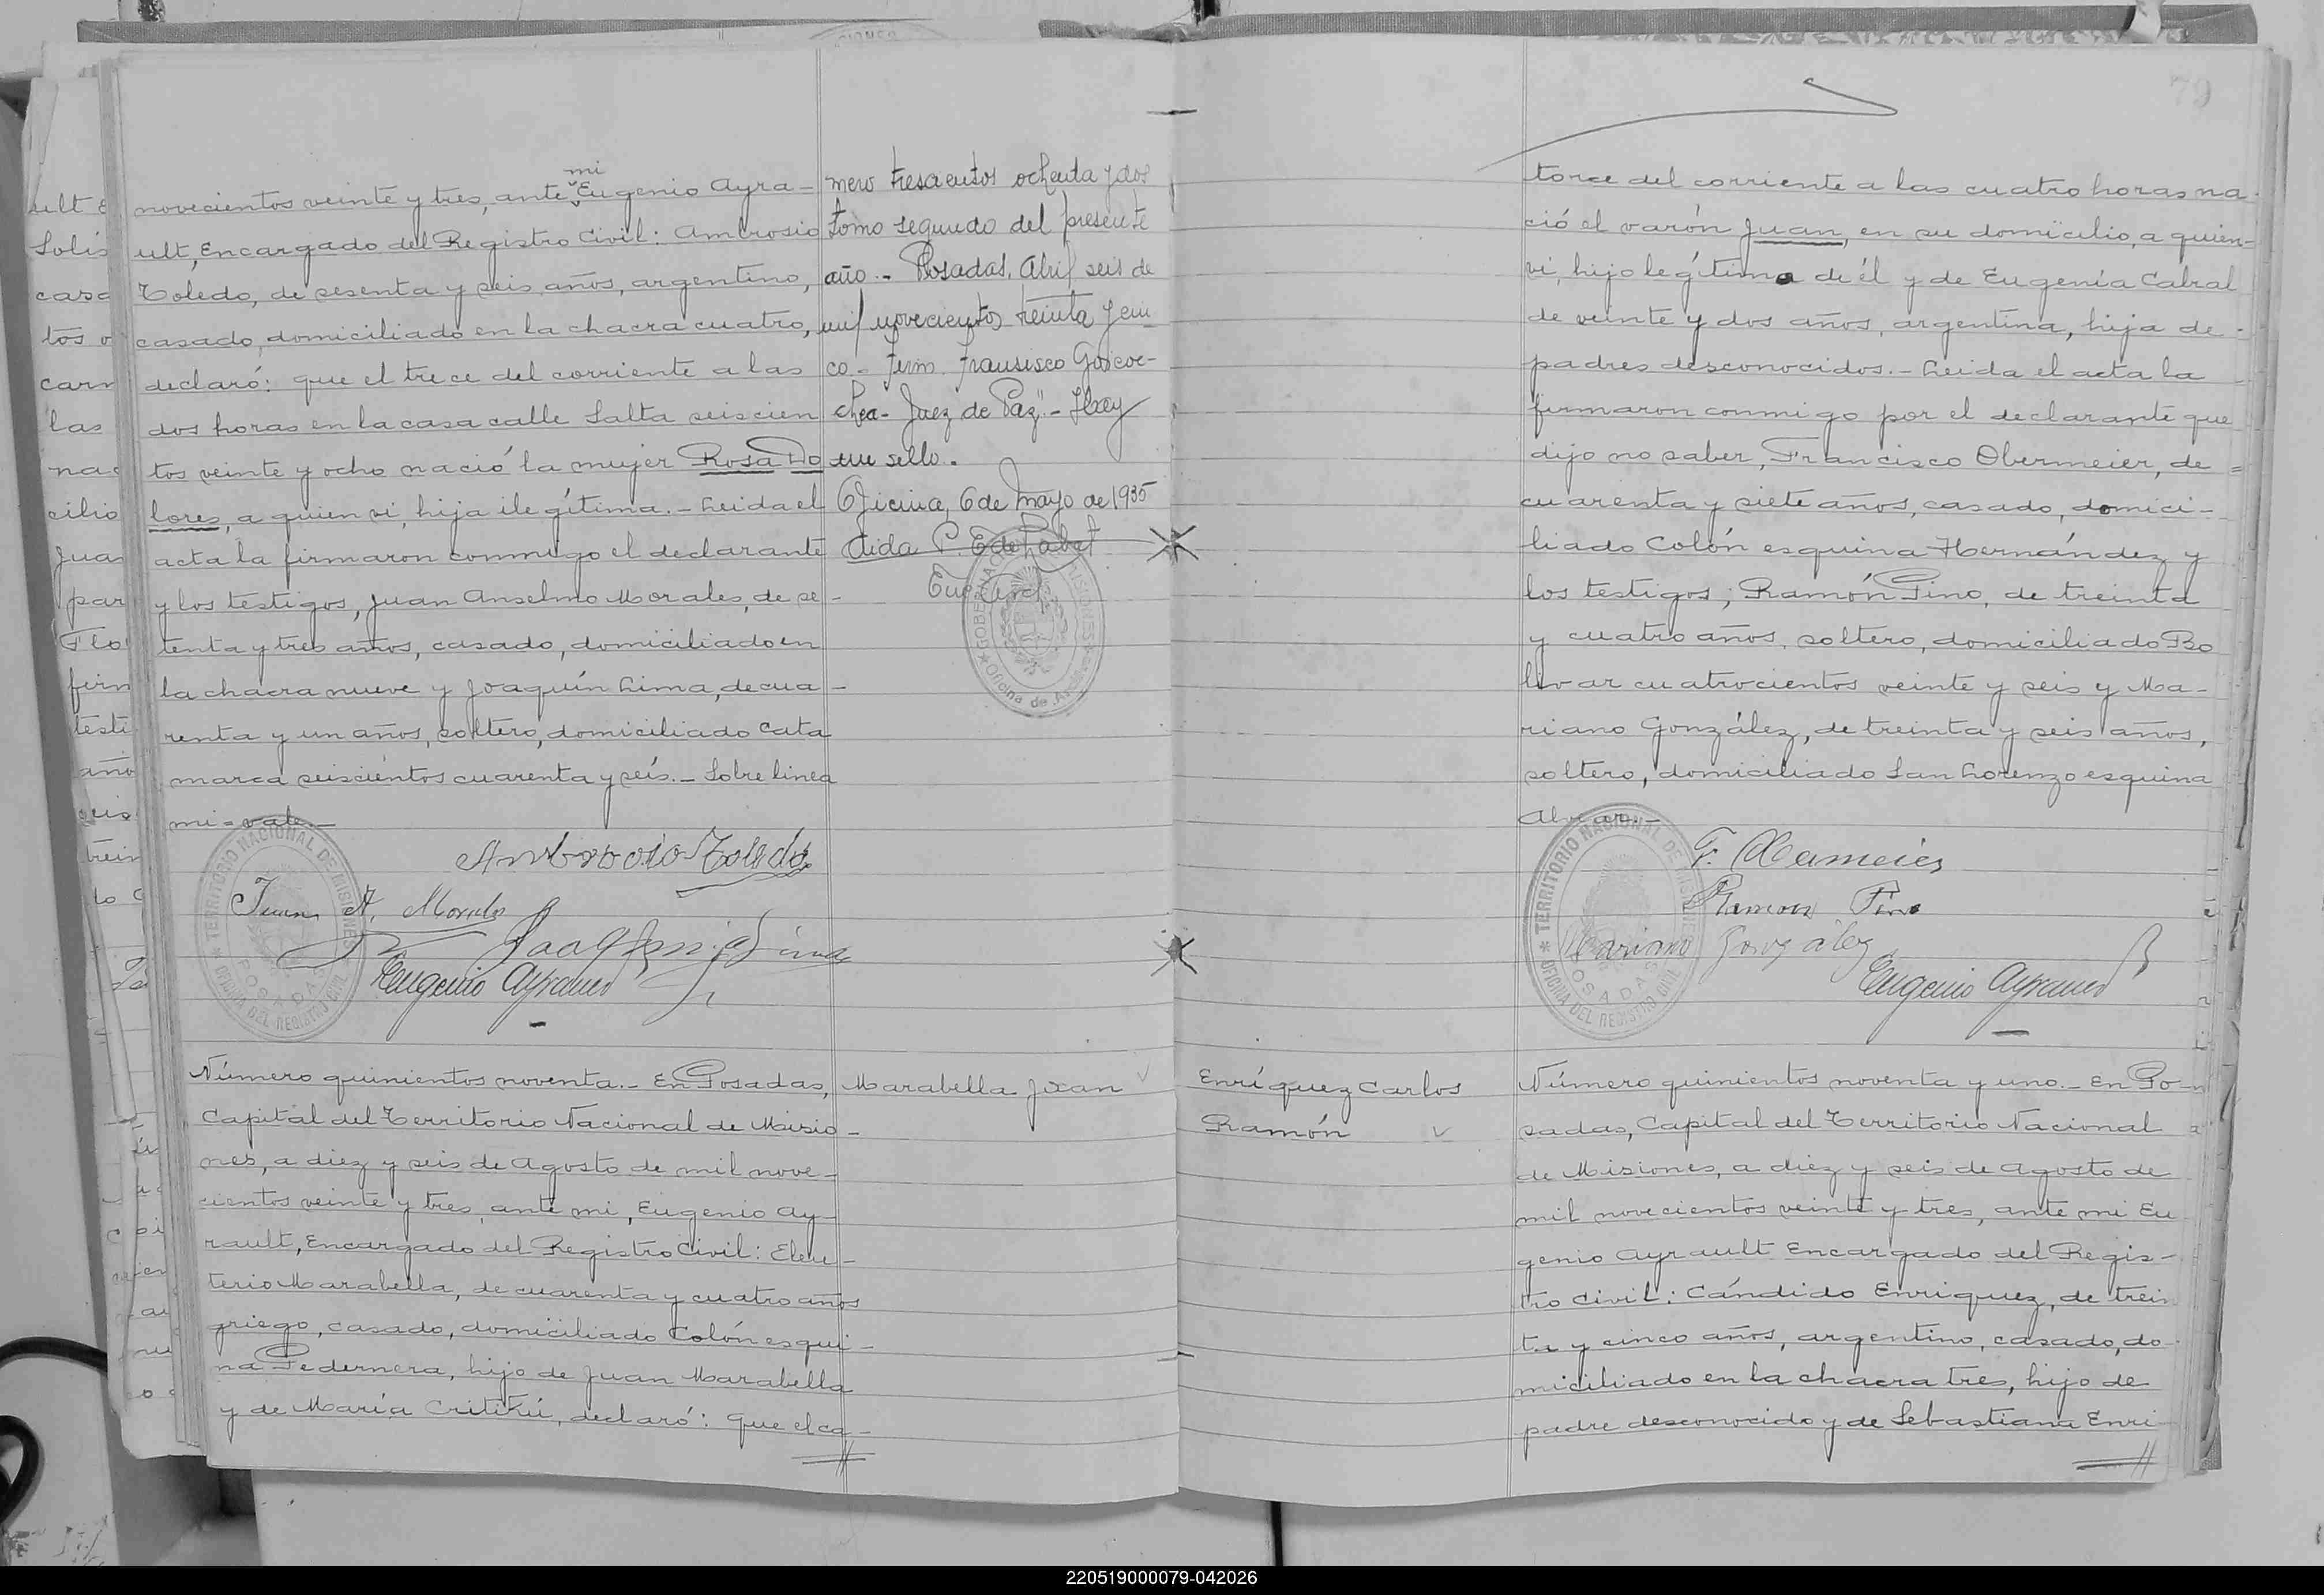 mi
novecientos veinte y tres, ante Eugenio Ayra-
ult, Encargado del Registro Civil: Ambrosio
Toledo, de sesenta y seis años, argentino,
casado, domiciliado en la chacra cuatro,
declaró: que el trece del corriente a las
dos horas en la casa calle Salta seiscien
tos veinte y ocho nació la mujer Rosa Do
lores, a quien vi, hija ilegítima. - Leida el
acta la firmaron conmigo el declarante
y los testigos, Juan Anselmo Morales, de se-
tenta y tres años, casado, domiciliado en
la chacra nueve y Joaquín Lima, de cua-
renta y un años, soltero, domiciliado Cata
marca seiscientos cuarenta y seis. - Sobre linea
mi = vale. -
Ambrosio Toledo
Juan A. Morales
Joaquin Lima
Eugenio Ayrault
TERRITORIO NACIONAL DE MISIONES
POSADAS
OFICINA DEL REGISTRO CIVIL
mero trescientos ochenta y dos
tomo segundo del presente
año. - Posadas, Abril seis de
mil novecientos treinta y cin
co. - Firm. Fransisco Goicoe-
chea - Juez de Paz" - Hay
un sello.
Oficina, 6 de Mayo de 1935
Aida P. E de Labat
Número quinientos noventa. - En Posadas,
Capital del Territorio Nacional de Misio-
nes, a diez y seis de Agosto de mil nove-
cientos veinte y tres, ante mi, Eugenio Ay-
rault, Encargado del Registro Civil: Eleu-
terio Marabella, de cuarenta y cuatro años
griego, casado, domiciliado Colón esqui-
na Pedernera, hijo de Juan Marabella
y de María Critikú, declaró: Que el ca-
Marabella Juan
79
torce del corriente a las cuatro horas na-
ció el varón Juan, en su domicilio, a quien-
vi, hijo legítimo de él y de Eugenia Cabral
de veinte y dos años, argentina, hija de-
padres desconocidos. - Leida el acta la
firmaron conmigo por el declarante que
dijo no saber, Francisco Obermeier, de =
cuarenta y siete años, casado, domici-
liado Colón esquina Hernández y
los testigos; Ramón Pino, de treinta
y cuatro años, soltero, domiciliado Bo
livar cuatrocientos veinte y seis y Ma-
riano González, de treinta y seis años,
soltero, domiciliado San Lorenzo esquina
Alvear. -
F. Obermeier
Ramon Pino
Mariano González
Eugenio Ayrault
TERRITORIO NACIONAL DE MISIONES
POSADAS
OFICINA DEL REGISTRO CIVIL
Enríquez Carlos
Ramón
Número quinientos noventa y uno. - En Po-
sadas, Capital del Territorio Nacional
de Misiones, a diez y seis de Agosto de
mil novecientos veinte y tres, ante mi Eu
genio Ayrault Encargado del Regis-
tro Civil: Cándido Enriquez, de trein
ta y cinco años, argentino, casado, do-
miciliado en la chacra tres, hijo de
padre desconocido y de Sebastiana Enri
220519000079-042026